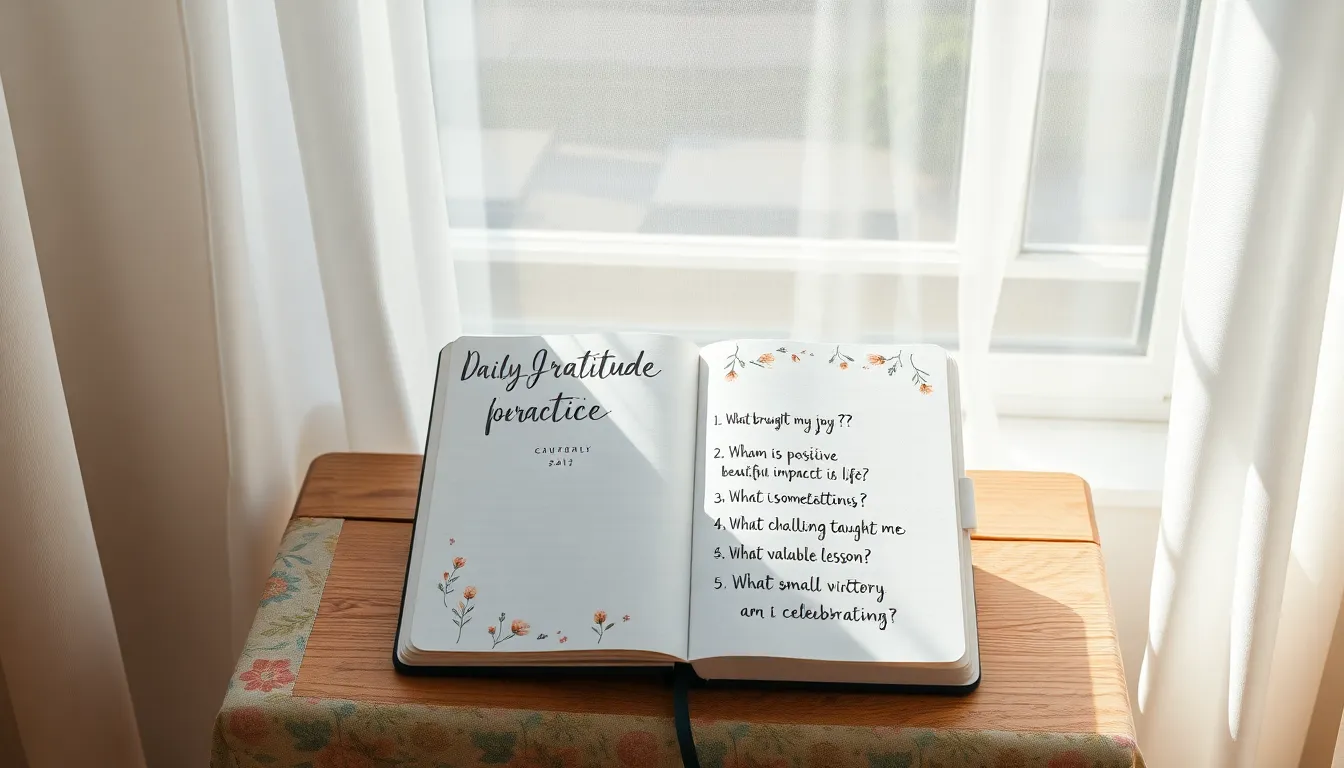 Daily Gratitude
peractice
1. What brought my joy ??
2. Wham is positive
beautiful impact is life?
3. What
4. What challing taught me
5. What valuable lesson?
5. What small victory
am i celebrating?